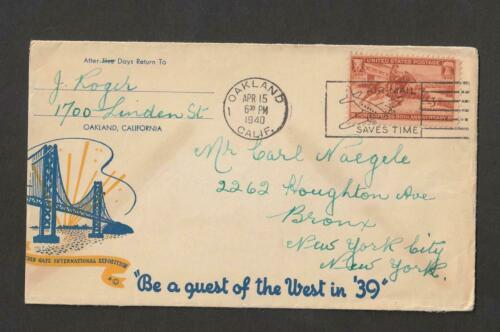 After Five Days Return To
J. Roger
1700 Linden St
OAKLAND, CALIFORNIA
OAKLAND
APR 15
6 30 PM
1940
CALIF.
1
UNITED STATES POSTAGE
AIR MAIL
SAVES TIME
80TH ANNIVERSARY
Mr Carl Naegele
2262 Houghton Ave
Bronx
New York City
New York.
GATE INTERNATIONAL EXPOSITION
"Be a guest of the West in '39"